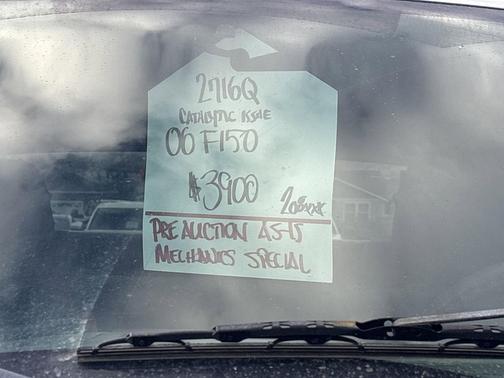 2716Q
CATALYTIC ISSUE
06 F150
$3900
208xxx
PRE AUCTION AS-IS
MECHANICS SPECIAL